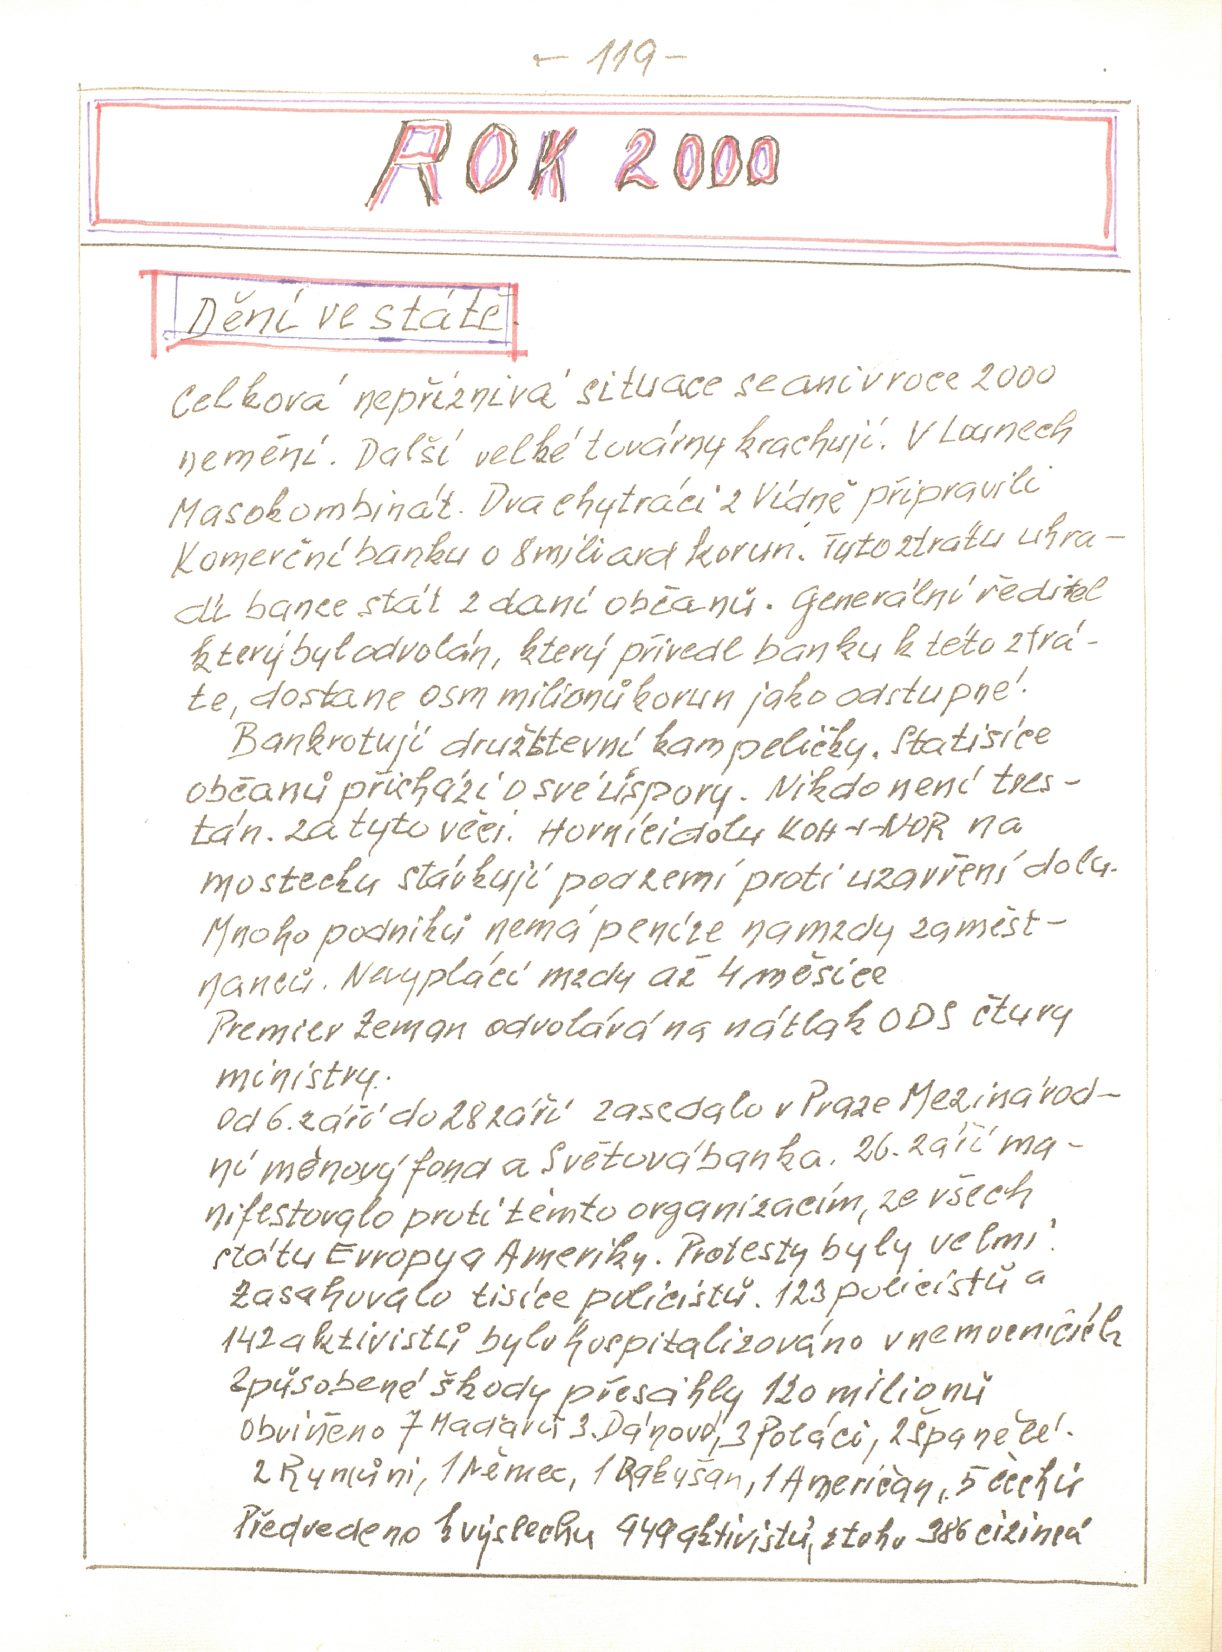 - 119 -
ROK 2000
Dění ve státě.
Celková nepříznivá situace se ani v roce 2000
nemění. Další velké továrny krachují. V Lounech
Masokombinát. Dva chytráci z Vídně připravili
Komerční banku o 8 miliard korun. Tuto ztrátu uhra-
dí bance stát z daní občanů. Generální ředitel
který byl odvolán, který přivedl banku k této ztrá-
tě, dostane osm milionů korun jako odstupné.
Bankrotují družstevní kampeličky. Statisíce
občanů přichází o své úspory. Nikdo není tres-
tán. za tyto věci. Horníci dolu KOH-I-NOR na
mostecku stávkují podzemí proti uzavření dolu.
Mnoho podniků nemá peníze na mzdy zaměst-
nanců. Nevyplácí mzdy až 4 měsíce
Premier Zeman odvolává na nátlak ODS čtyry
ministry.
Od 6. září do 28 září zasedalo v Praze Mezinárod-
ní měnový fond a Světová banka. 26. září ma-
nifestovalo proti těmto organizacím, ze všech
státu Evropy a Ameriky. Protesty byly velmi.
Zasahovalo tisíce policistů. 123 policistů a
142 aktivistů bylo hospitalizováno v nemocničích
Způsobené škody přesáhly 120 milionů
Obviněno 7 Maďarů 3. Dánové, 3 Poláci, 2 Španělé.
2 Rumuni, 1 Němec, 1 Rakušan, 1 Američan, 5 čechů
Předvedeno k výslechu 949 aktivistů, z toho 386 cizinců